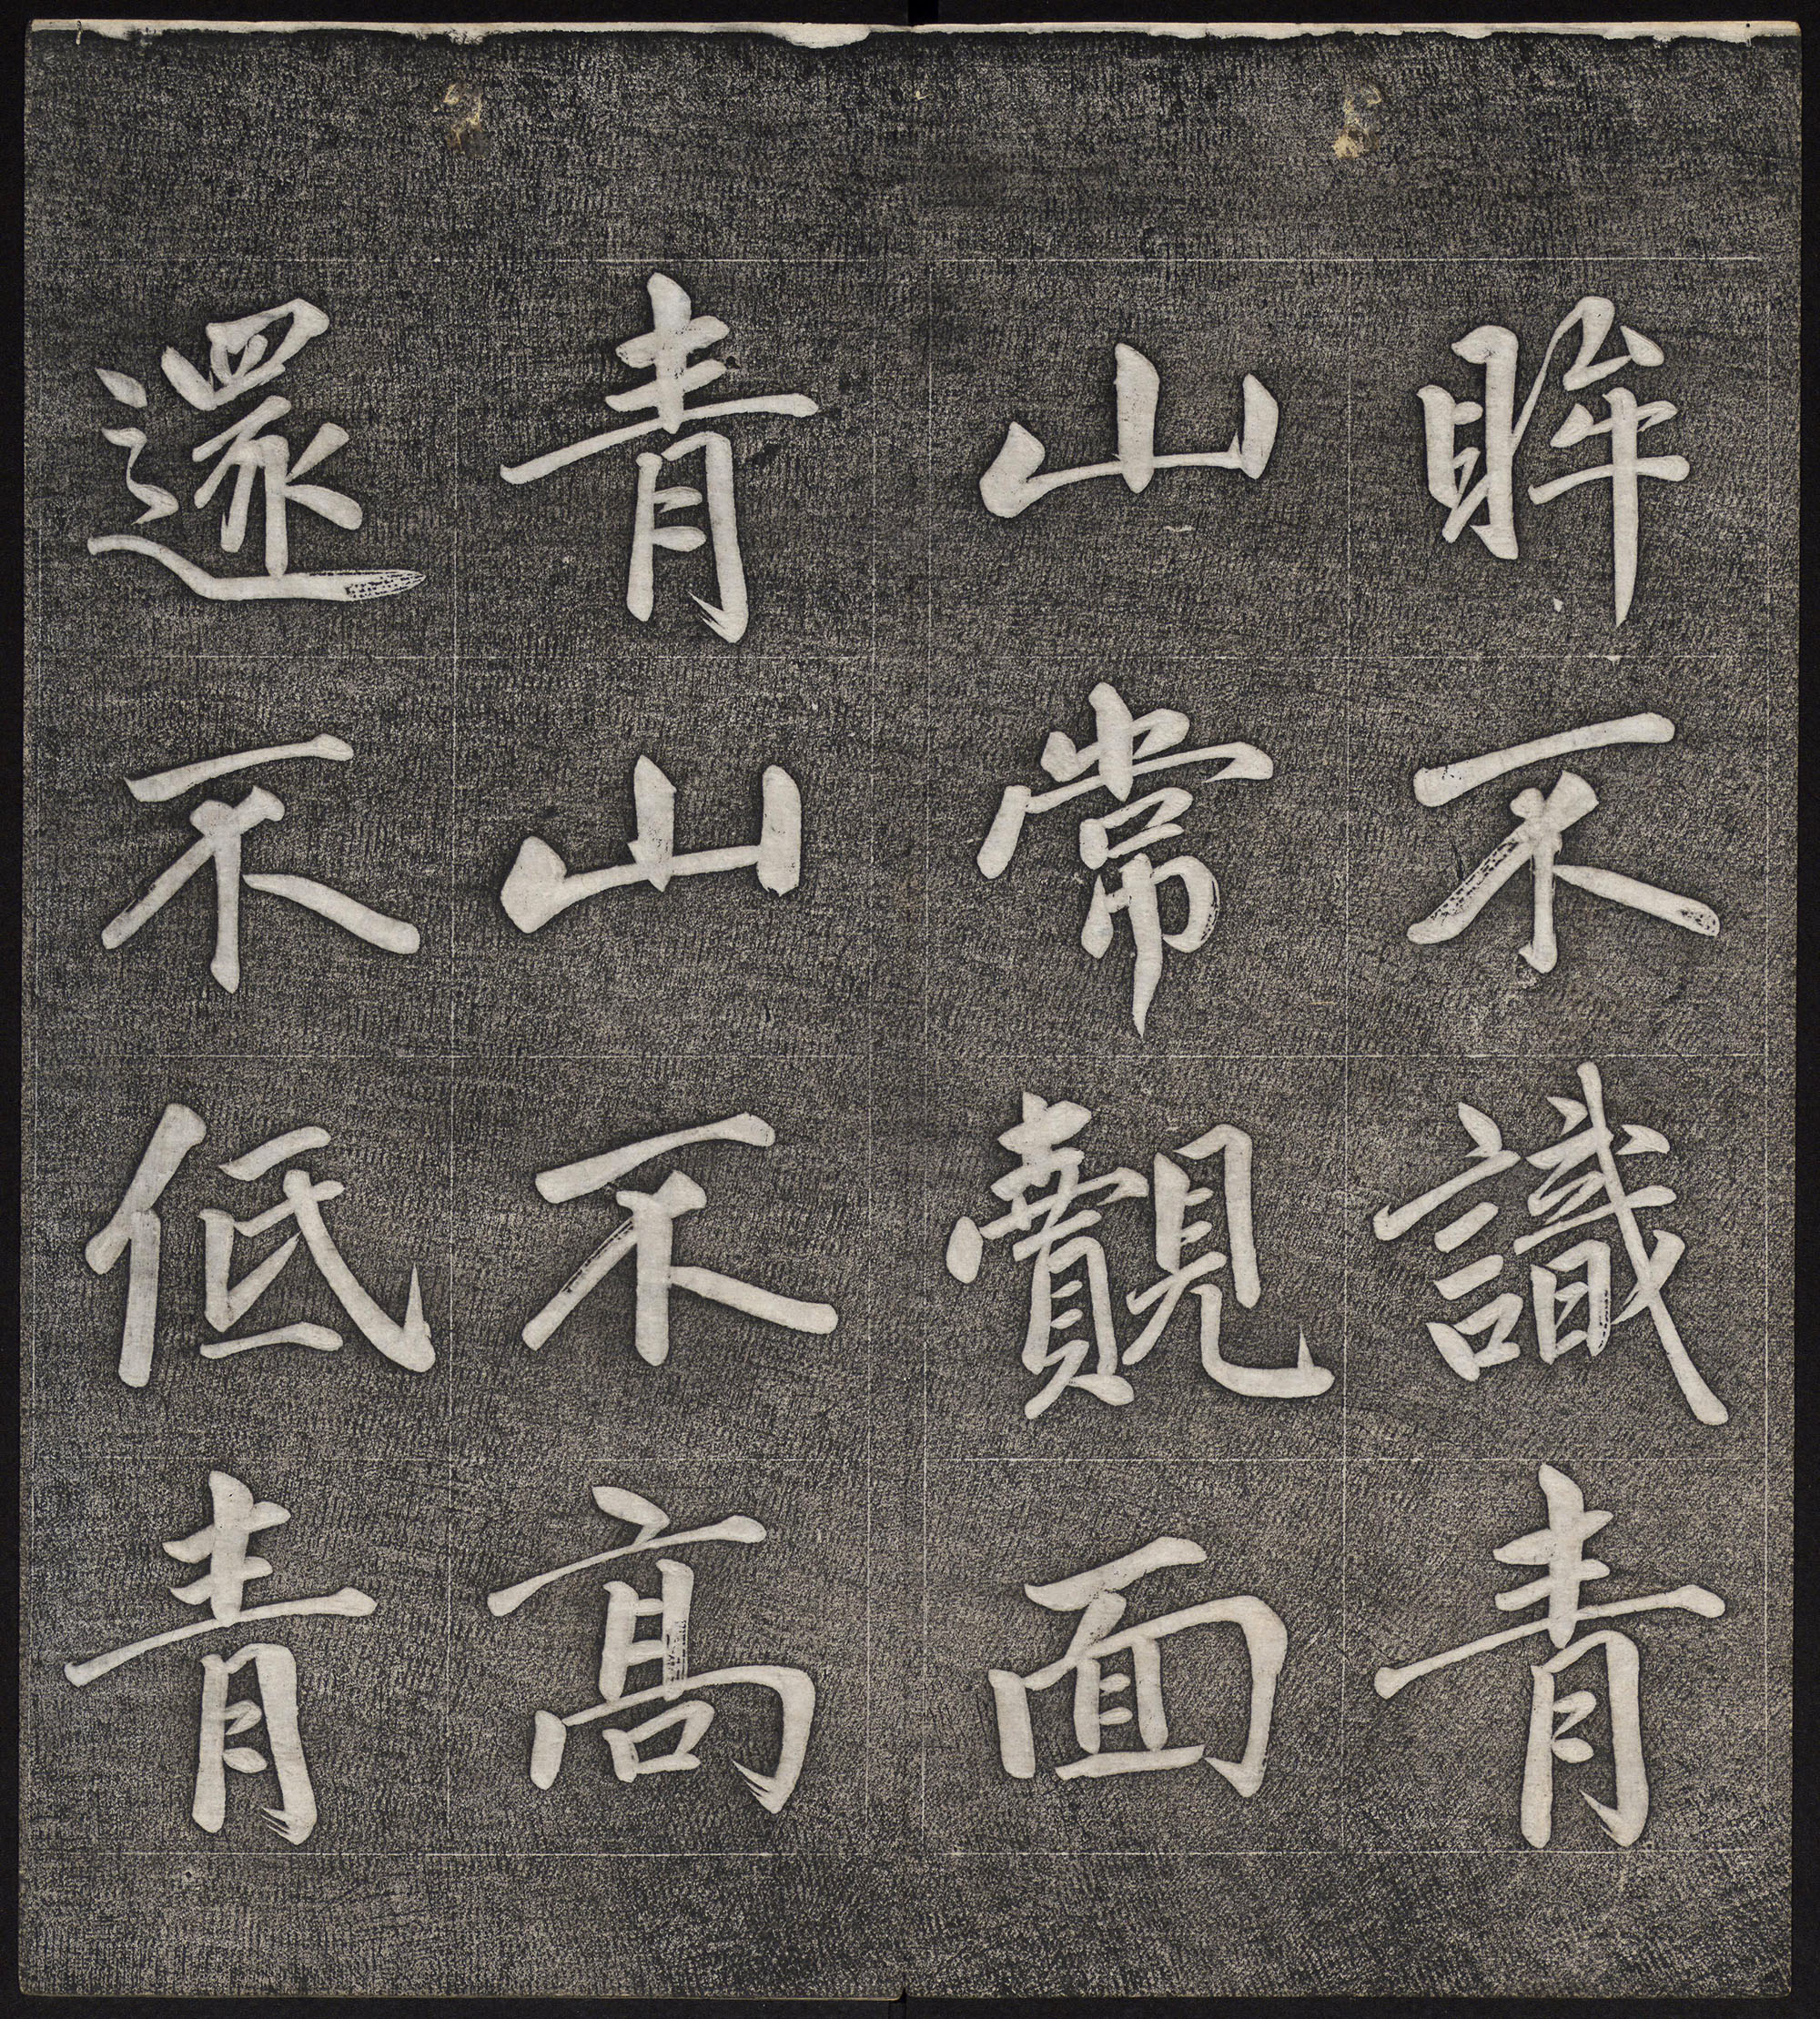 眸不識青
山常觀面
青山不高
還不低青